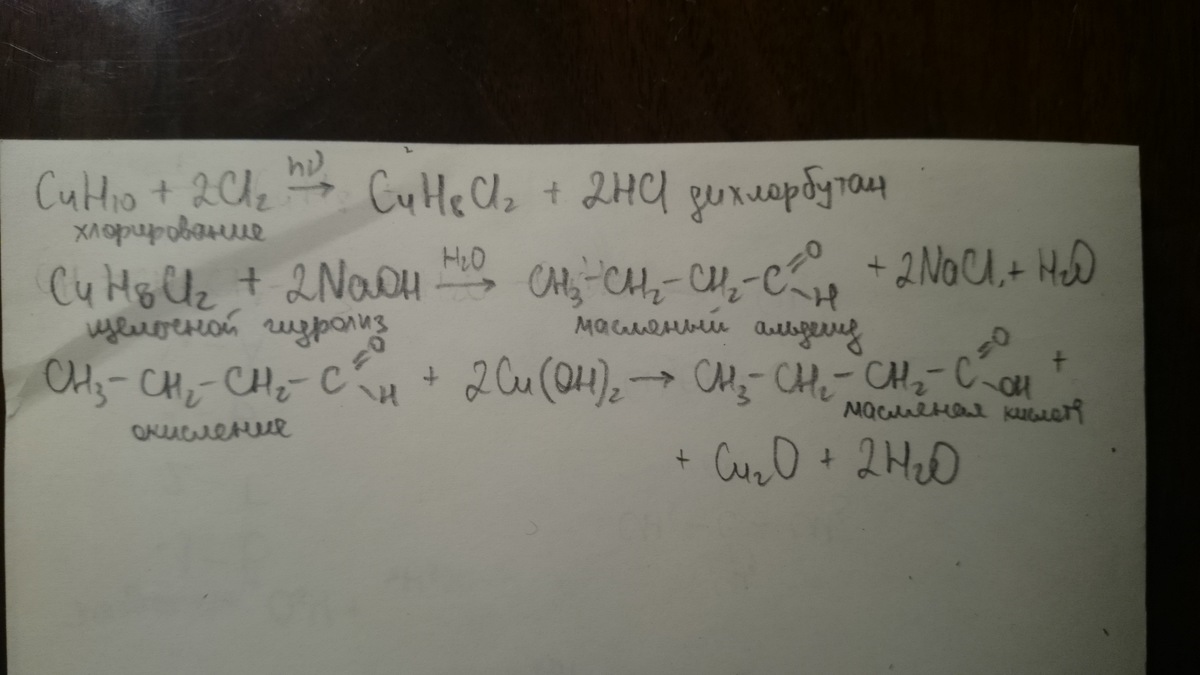 C₄H₁₀ + 2Cl₂ →(hν) C₄H₈Cl₂ + 2HCl дихлорбутан
хлорирование
C₄H₈Cl₂ + 2NaOH →(H₂O) CH₃-CH₂-CH₂-C(=O)-H + 2NaCl + H₂O
щелочной гидролиз масляный альдегид
CH₃-CH₂-CH₂-C(=O)-H + 2Cu(OH)₂ → CH₃-CH₂-CH₂-C(=O)-OH +
окисление масляная кислота
+ Cu₂O + 2H₂O